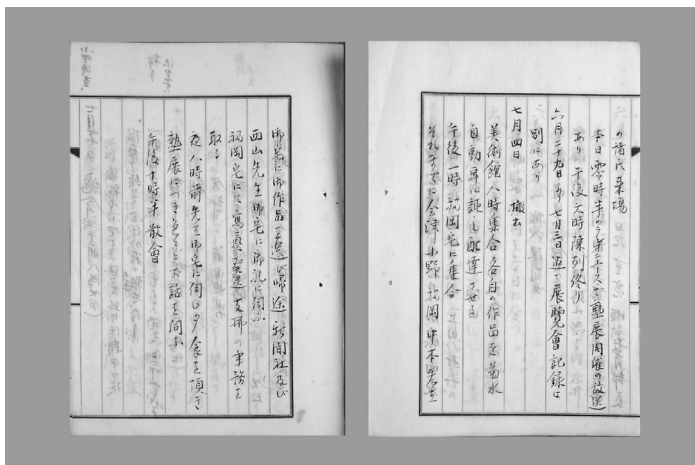 の諸氏来場
本日零時半のラヂオニュースで塾展開催の放送
あり 午後六時陳列終る
六月二十九日より七月三日迄の展覧會記録は
別にあり
七月四日 搬出
美術館八時集合各自の作品を菊水
自動車に託し配達せしむ
午後一時 福岡宅に集合
それまでに会津 小野 福岡 中本
御宅に御作品を運び帰途新聞社及び
西山先生御宅に御礼に伺ふ
福岡宅にて寫真發送支拂の事務を
取る
夜八時前先生御宅に伺ひ夕食を頂き
塾展につき色々とお話を伺ふ
午後十時半散會